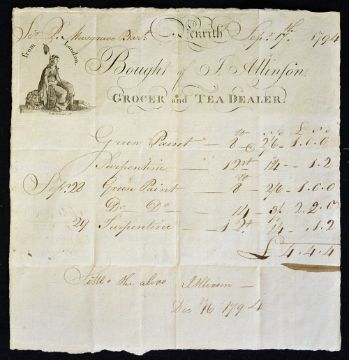 From London
Penrith Sepr. 17th. 1794
Sr. P. Musgrave Bart
Bought of J. Atkinson,
GROCER and TEA DEALER.
Green Paint — 8 @ 2/6 - 1.0.0
Turpentine — 1 14 - 1.2
Sepr. 22 Green Paint — 8 - 2/6 - 1.0.0
Do. Do — 14 - 3/ 2.2.0
29 Turpentine — 1 14 - 1.2
£ 4.4.4
the above J Atkinson
Dec 16 1794